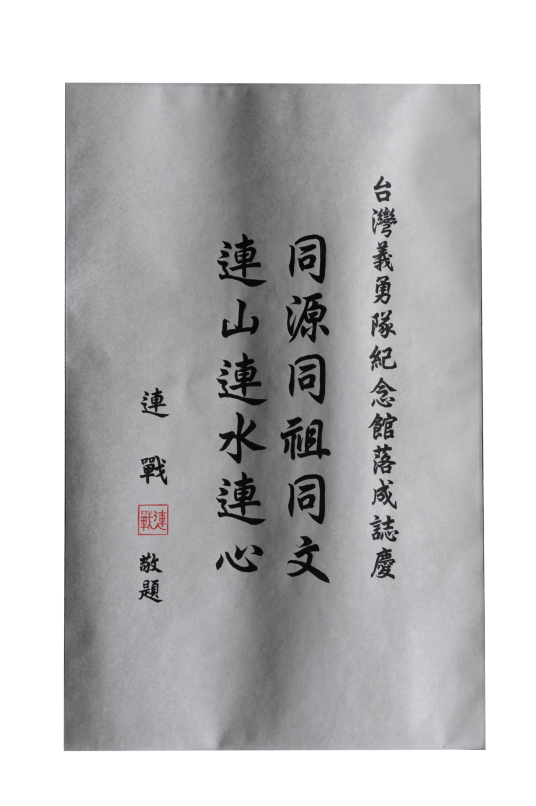 台灣義勇隊紀念館落成誌慶
同源同祖同文
連山連水連心
連戰
連戰
敬題